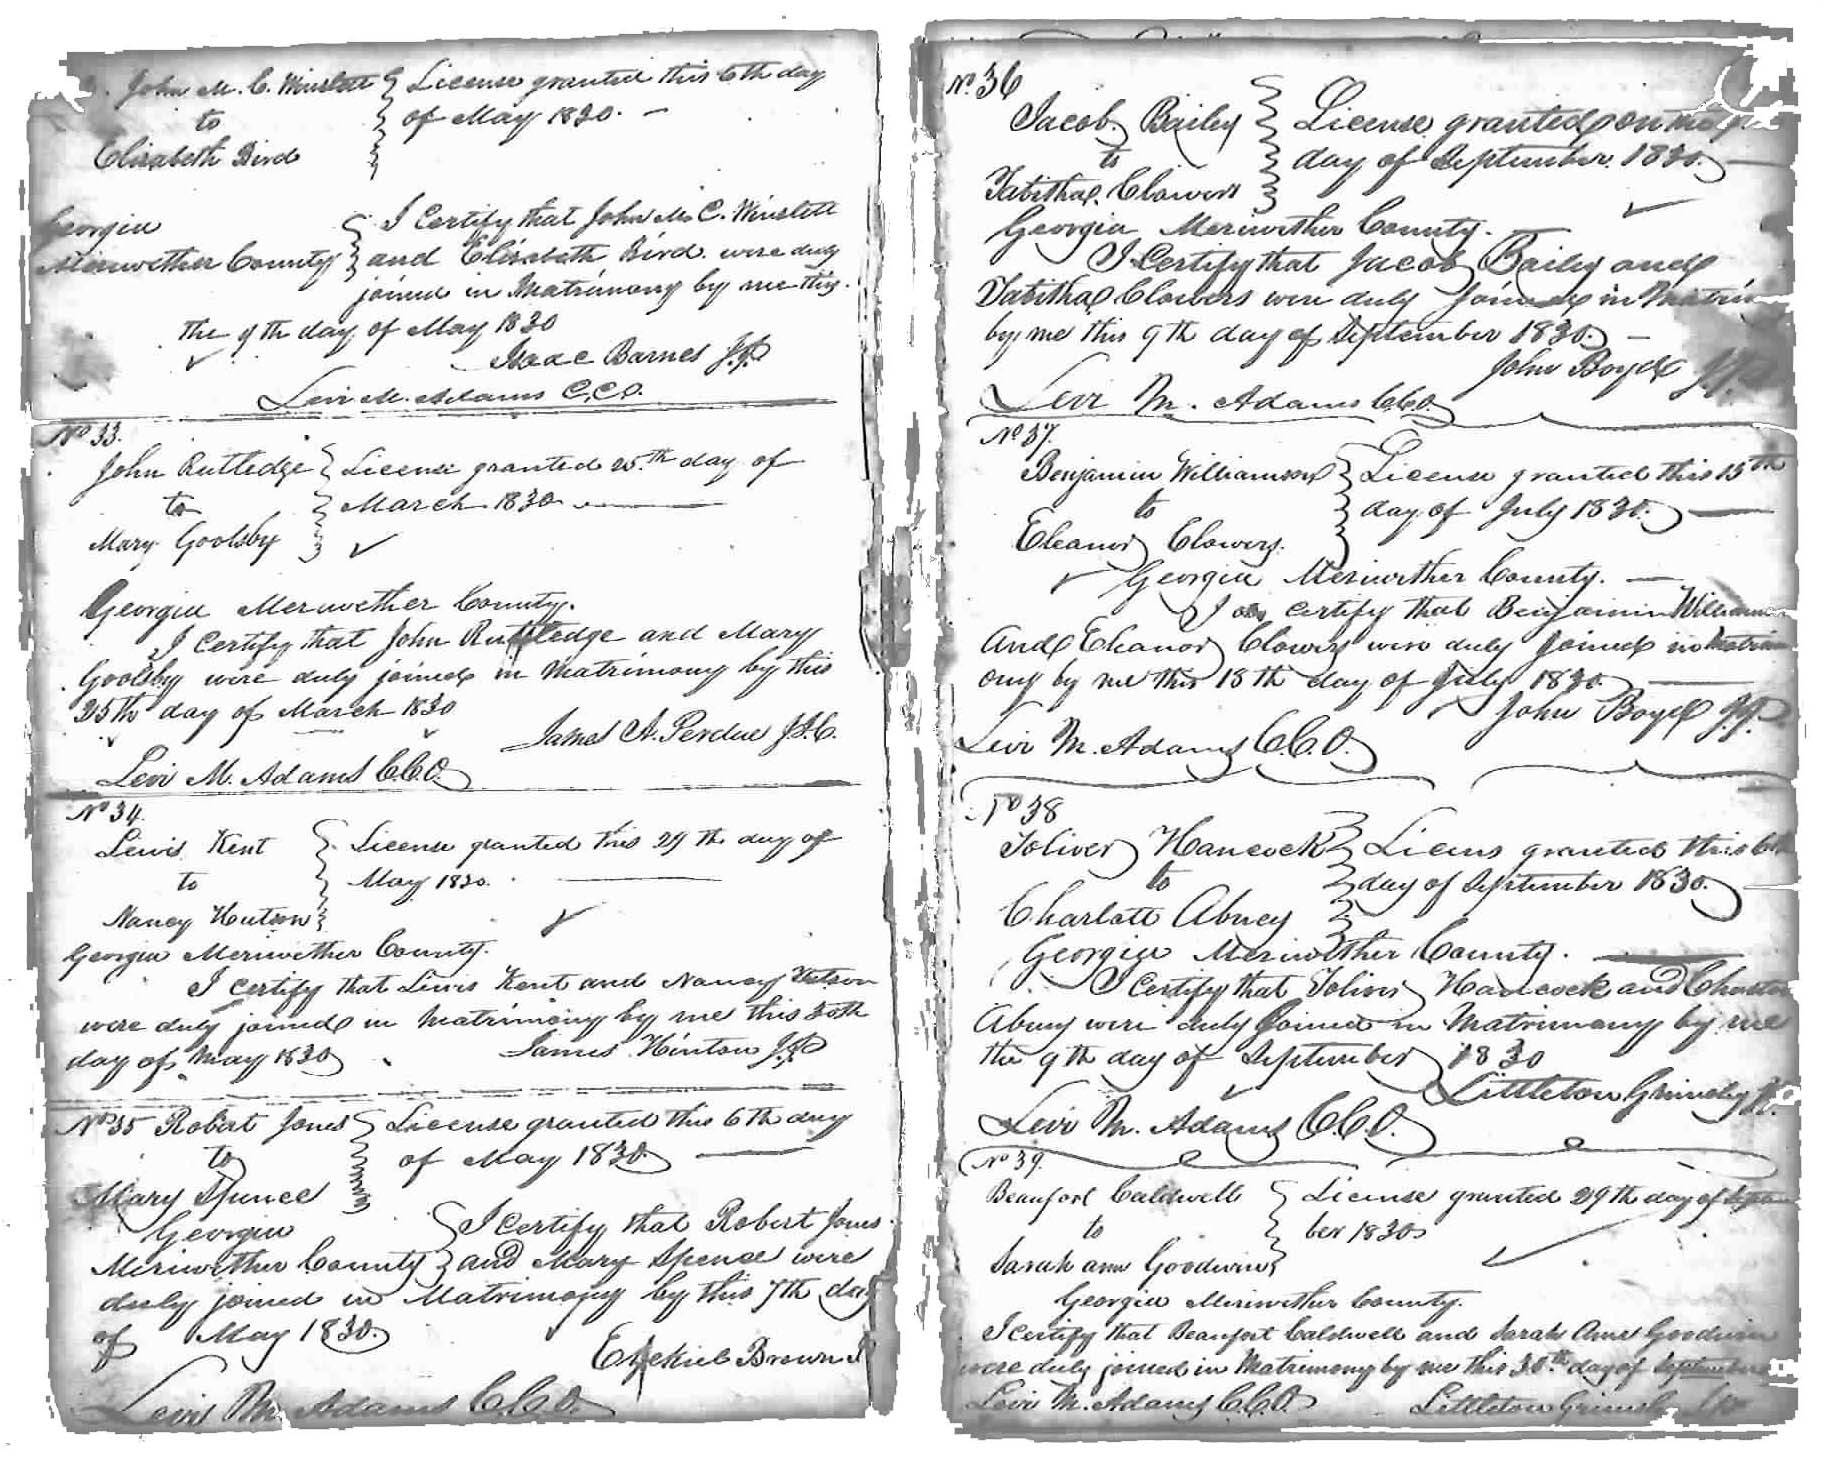 John M. C. Winslett License granted this 6th day
to of May 1830.
Elisabeth Bird
Georgia I Certify that John M. C. Winslett
Meriwether County and Elisabeth Bird were duly
joined in Matrimony by me this
the 9th day of May 1830
Isaac Barnes J.P.
Levi M. Adams C.C.O.
No 33.
John Rutledge License granted 25.th day of
to March 1830
Mary Goolsby
Georgia Meriwether County.
I Certify that John Rutledge and Mary
Goolsby were duly joined in Matrimony by this
25th day of March 1830
James A. Perdue J.I.C.
Levi M. Adams C.C.O.
No 34.
Lewis Kent License granted this 29th day of
to May 1830.
Nancy Hutson
Georgia Meriwether County.
I certify that Lewis Kent and Nancy Hutson
were duly joined in Matrimony by me this 30th
day of May 1830
James Hinton J.P.
No 35 Robert Jones License granted this 6th day
to of May 1830.
Mary Spence
Georgia I certify that Robert Jones
Meriwether County and Mary Spence were
duly joined in Matrimony by this 7th day
of May 1830.
Ezekiel Brown J
Levi M. Adams C.C.O.
No. 36
Jacob Bailey License granted on the
to day of September 1830.
Tabitha Clowers
Georgia Meriwether County.
I Certify that Jacob Bailey and
Tabitha Clowers were duly Joined in Matrim
by me this 9th day of September 1830.
John Boyd J.P.
Levi M. Adams C.C.O.
No 37.
Benjamin Williamson License granted this 15th
to day of July 1830.
Eleanor Clowers.
Georgia Meriwether County.
I do certify that Benjamin Williamson
and Eleanor Clowers were duly Joined in Matrim
ony by me this 18th day of July 1830.
John Boyd J.P.
Levi M. Adams C.C.O.
No 38
Toliver Hancock Licens granted this 6th
to day of September 1830.
Charlott Abney
Georgia Meriwether County.
I Certify that Toliver Hancock and Charlott
Abney were duly Joined in Matrimony by me
the 9th day of September 1830
Littleton Grimsley J.P.
Levi M. Adams C.C.O.
No 39.
Beaufort Caldwell License granted 29th day of Septem
to ber 1830
Sarah ann Goodwin
Georgia Meriwether County.
I certify that Beaufort Caldwell and Sarah Ann Goodwin
were duly joined in Matrimony by me this 30.th day of September
Levi M. Adams C.C.O. Littleton Grimsley J.P.